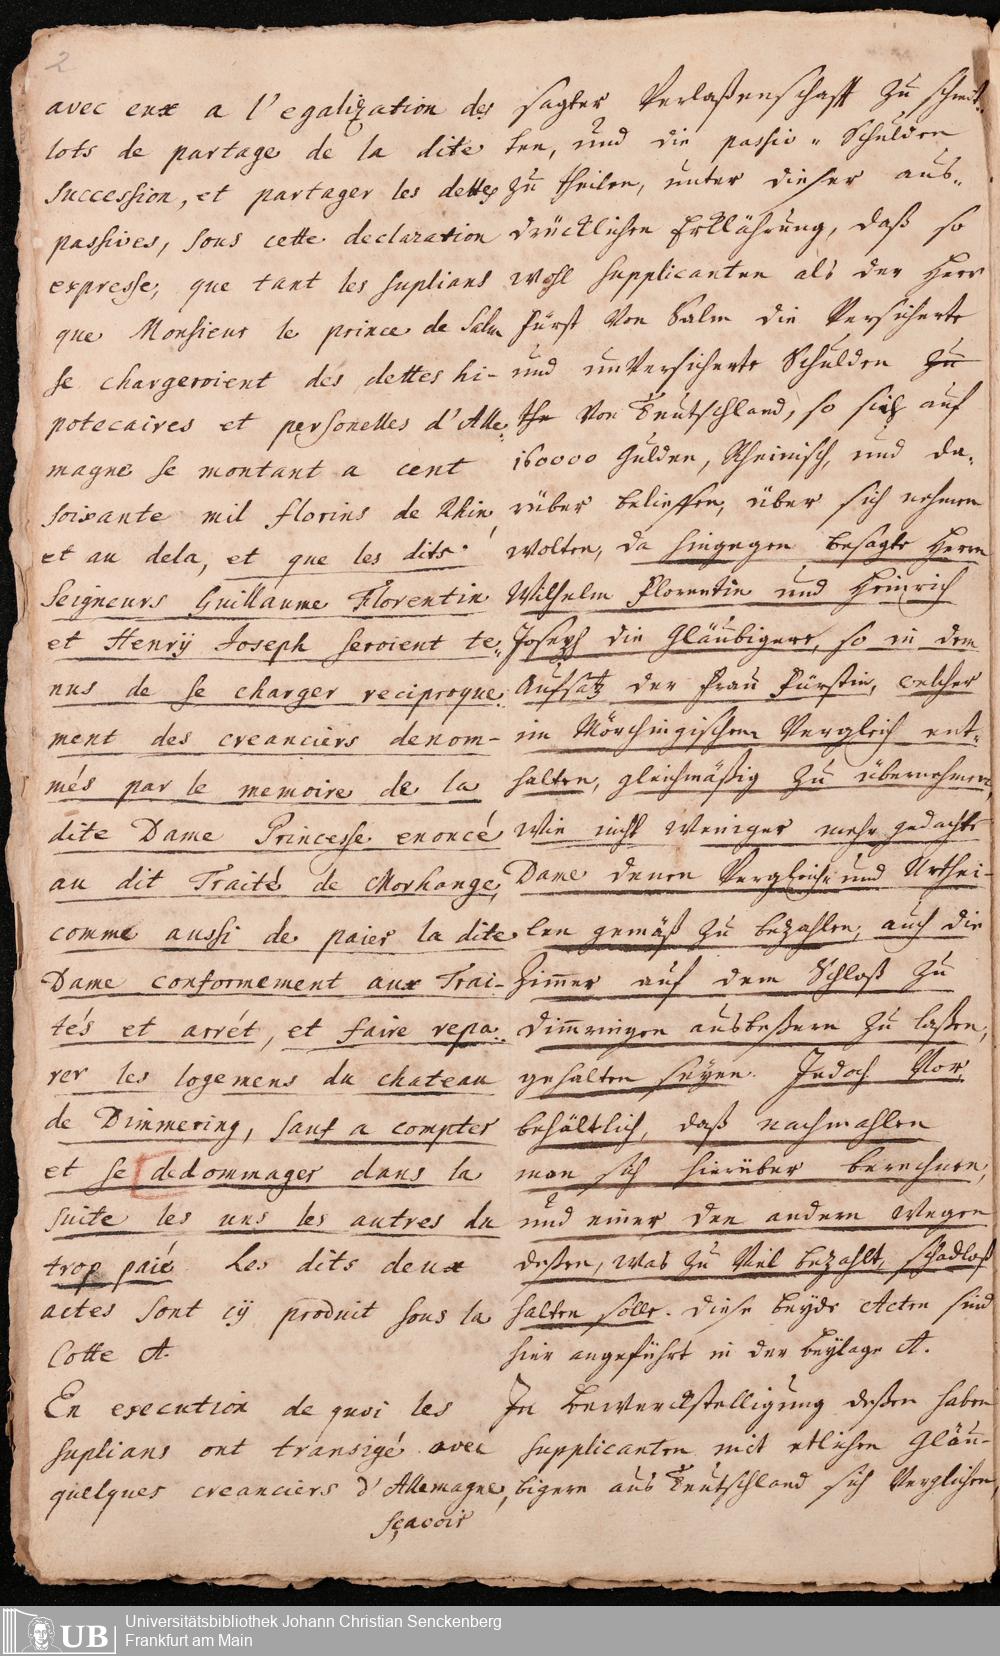 2
avec eux a l'egalization des
lots de partage de la dite
succession, et partager les dettes
passives, sous cette declaration
expresse, que tant les suplians
que Monsieur le prince de Salm
se chargeroient des dettes hi-
potecaires et personelles d'Alle-
magne se montant a cent
soixante mil florins de Rhin,
et au dela, et que les dits
Seigneurs Guillaume Florentin
et Henrÿ Joseph seroient te-
nus de se charger reciproque-
ment des creanciers denom-
més par le memoire de la
dite Dame Princesse enoncé
au dit Traité de Morhange,
comme aussi de paier la dite
Dame conformement aux Trai-
tés et arrét, et faire repa-
rer les logemens du chateau
de Dimmering, sauf a compter
et se dedommager dans la
suite les uns les autres du
trop paié. Les dits deux
actes sont cÿ produit sous la
Cotte A.
En execution de quoi les
suplians ont transigé avec
quelques creanciers d'Allemagne,
sçavoir
sagter Verlaßenschafft zu schreit-
ten, und die passiv-Schulden
zu theilen, unter dieser aus-
drücklichen Erklährung, daß so
wohl Supplicanten als der Herr
Fürst von Salm die Versicherte
und unversicherte Schulden zu
von Teutschland, so sich auf
160000 Gulden, Rheinisch, und da-
rüber belieffen, über sich nehmen
wolten, da hingegen besagte Herrn
Wilhelm Florentin und Heinrich
Joseph die Gläubigere, so in dem
Aufsatz der Frau Fürstin, welcher
im Mörchingischen Vergleich ent-
halten, gleichmäßig zu übernehmen,
wie nicht weniger mehr gedachte
Dame denen Vergleich und Urthei-
len gemäß zu bezahlen, auch die
Zimmer auf dem Schloß zu
Dimringen ausbeßern zu laßen,
gehalten seyen. Jedoch Vor
behältlich, daß nachmahlen
man sich hierüber berechnen,
und einer den andern wegen
deßen, was zu viel bezahlt, schadloß
halten solle. Diese beyde Acten sind
hier angeführt in der beÿlage A.
In bewerckstelligung deßen haben
Supplicanten mit etlichen Gläu-
bigern aus Teutschland sich verglichen,
UB
Universitätsbibliothek Johann Christian Senckenberg
Frankfurt am Main